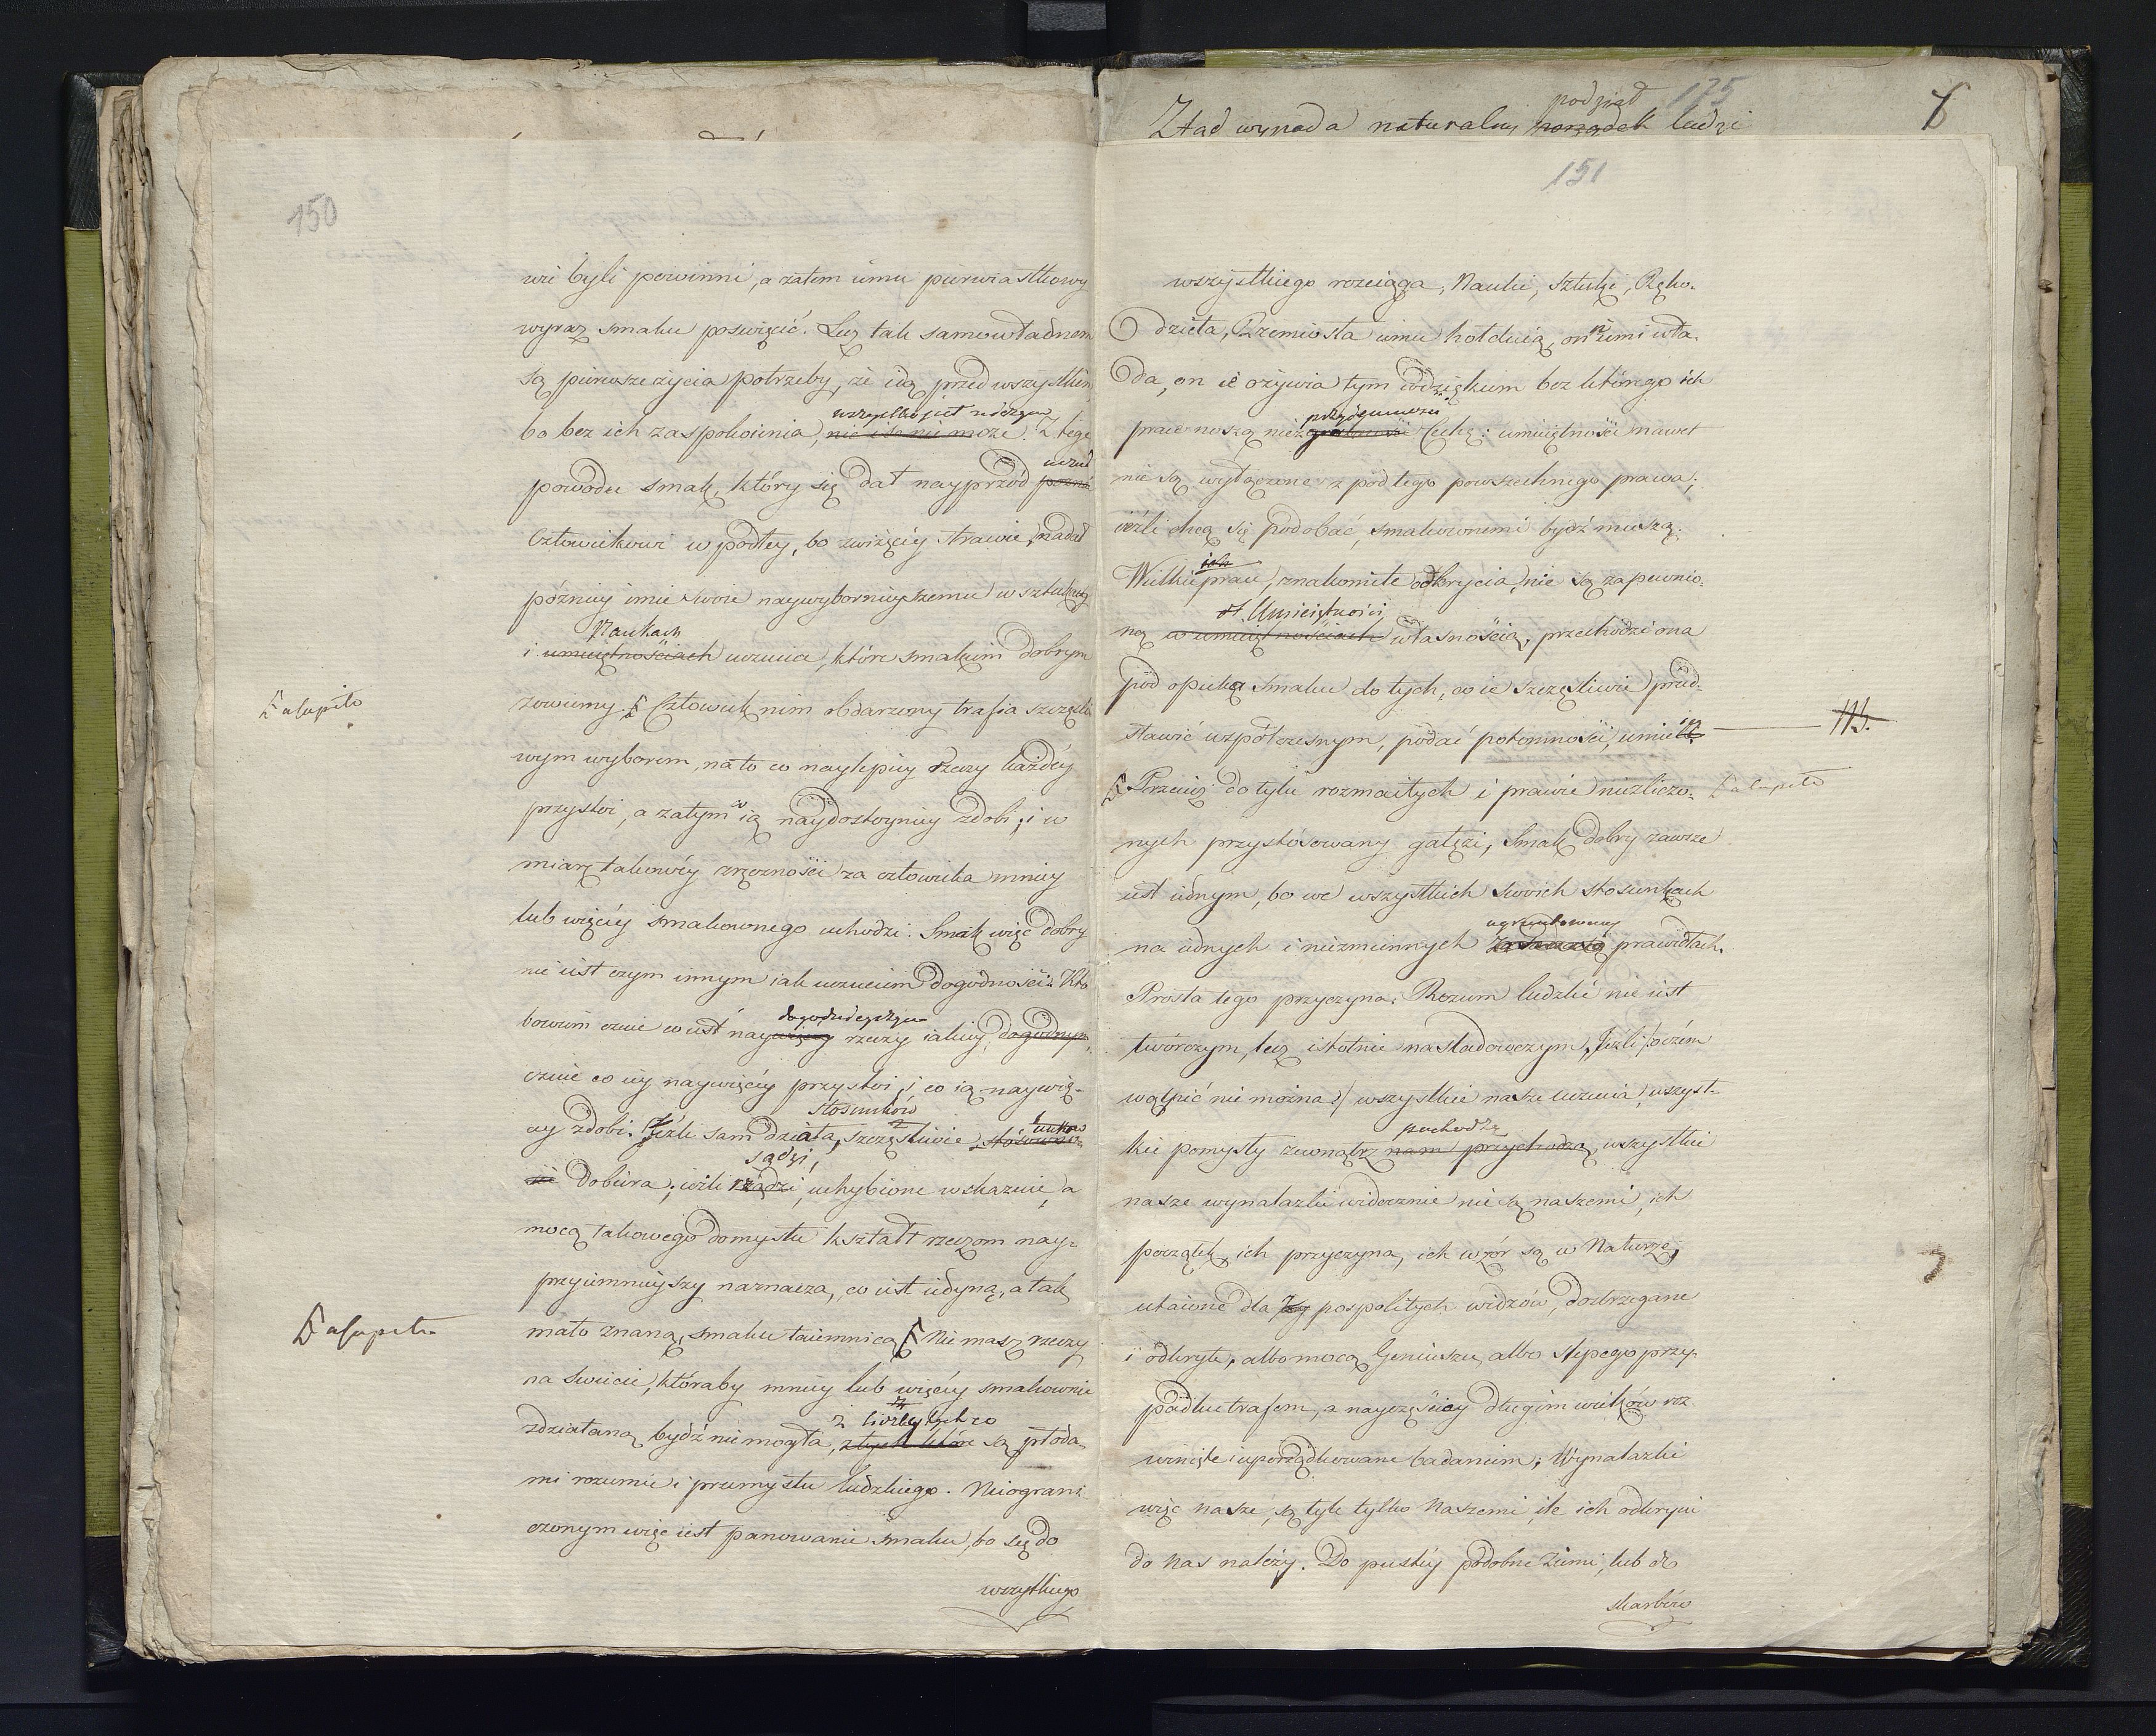 150
wi byli powinni, a zatem iemu pierwiastkowy
wyraz smaku poswięcić. Lecz tak samowładnem
są pierwsze życia potrzeby, że idą przed wszystkim
wszystko jest niczym
bo bez ich zaspokoienia, nic iść nie może. Z tego
powodu smak, który się dał nayprzód
człowiekowi w podłey, bo zwierzęcey strawie, nadał
poźniey imie swoie naywybornieyszemu w sztukach
Naukach
i umieiętnościach uczuciu, które smakiem dobrym
zowiemy. Człowiek nim obdarzony trafia szczęśli
a capite
wym wyborem, na to co naylepiey rzeczy każdey
przystoi, a zatym co ią naydostoyniey zdobi; i w
miarę takowey zręczności za człowieka mniey
lub więcey smakownego uchodzi. Smak więc dobry
nie iest czym innym iak uczuciem dogodności. Kto
bowiem czuie co iest nay więcey rzeczy iakiey, dogodnym
czuie co iey naywięcey przystoi, i co ią naywię-
stosunków
cey zdobi. Jeźli sam działa, szczęśliwie
sądzi,
dobiera; ieźli rządzi, uchybione wskazuie, a
mocą takowego domysłu kształt rzeczom nay-
przyiemnieyszy naznacza, co iest iedyną, a tak
mało znaną smaku taiemnicą. Nie masz rzeczy
a capite
na swiecie, któraby mniey lub więcey smakownie
z liczby tych co
zdziałaną bydź nie mogła, z tych które są płoda-
mi rozumu i przemysłu ludzkiego. Nieograni-
czonym więc iest panowanie smaku, bo się do
wszystkiego
175
podział
Ztąd wypada naturalny porządek ludzi
151
wszystkiego rozciąga; Nauki, Sztuki, Ręko-
dzieła, Rzemiosła iemu hołduią, on niemi wła-
da, on ie ożywia tym wdziękiem bez którego ich
przyiemności
prace noszą niez cechę: umieiętności nawet
nie są wyłączone z pod tego powszechnego prawa;
ieźli chcą się podobać, smakownemi bydź muszą.
ich
Wielkie prace, znakomite odkrycia, nie są zapewnio-
Umieiętności
ną w umieiętnościach własnością, przechodzi ona
pod opieką smaku do tych, co ie szczęśliwie przed-
stawić wspołczesnym, podać potomności, umieią.
Przecież do tylu rozmaitych i prawie niezliczo-
a capite
nych przystósowany gałęzi, Smak dobry zawsze
iest iednym, bo we wszystkich swoich stosunkach
ugruntowany
na iednych i niezmiennych prawidłach.
Prosta tego przyczyna: Rozum ludzki nie iest
twórczym, lecz istotnie nasladowczym. Jeźli (o czém
wątpić nie można) wszystkie nasze uczucia, wszyst-
pochodzą
kie pomysły zewnątrz nam przychodzą, wszystkie
nasze wynalazki widocznie nie są naszemi, ich
początek, ich przyczyna, ich wzór są w Naturze,
utaione dla pospolitych widzów, dostrzegane
i odkryte, albo mocą Geniuszu, albo slepego przy-
padku trafem, a nayczęściey długim wieków roz-
winięte i uporządkowane badaniem; Wynalazki
więc nasze, są tyle tylko naszemi, ile ich odkrycie
do nas należy. Do pustéy podobne ziemi, lub do
skarbów